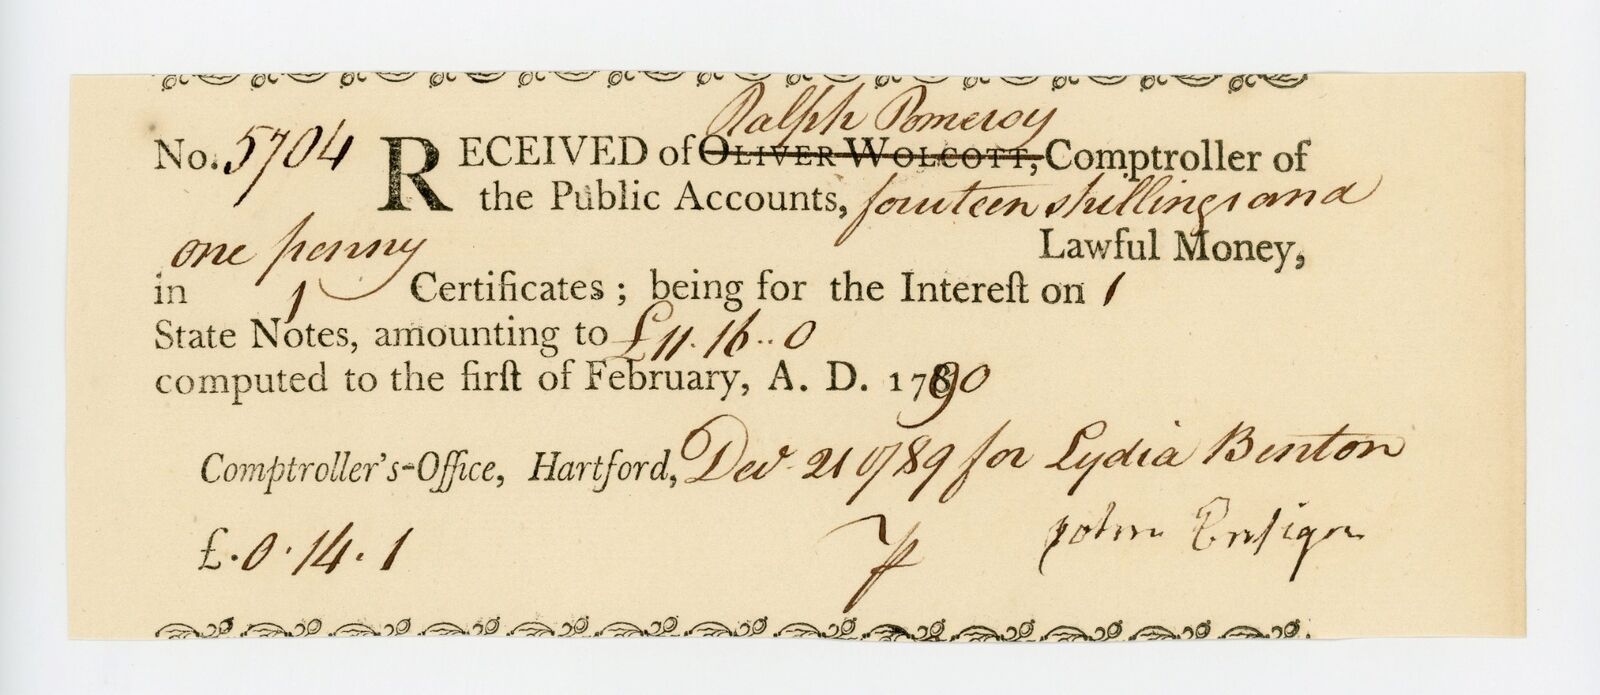 Ralph Pomeroy
No. 5704 RECEIVED of OLIVER WOLCOTT, Comptroller of
the Public Accounts, fourteen shillings and
one penny Lawful Money,
in 1 Certificates; being for the Intereſt on 1
State Notes, amounting to £11.16..0
computed to the firſt of February, A. D. 1790
Comptroller's-Office, Hartford, Decr 21 1789 for Lydia Benton
£.0.14.1 John Ensign